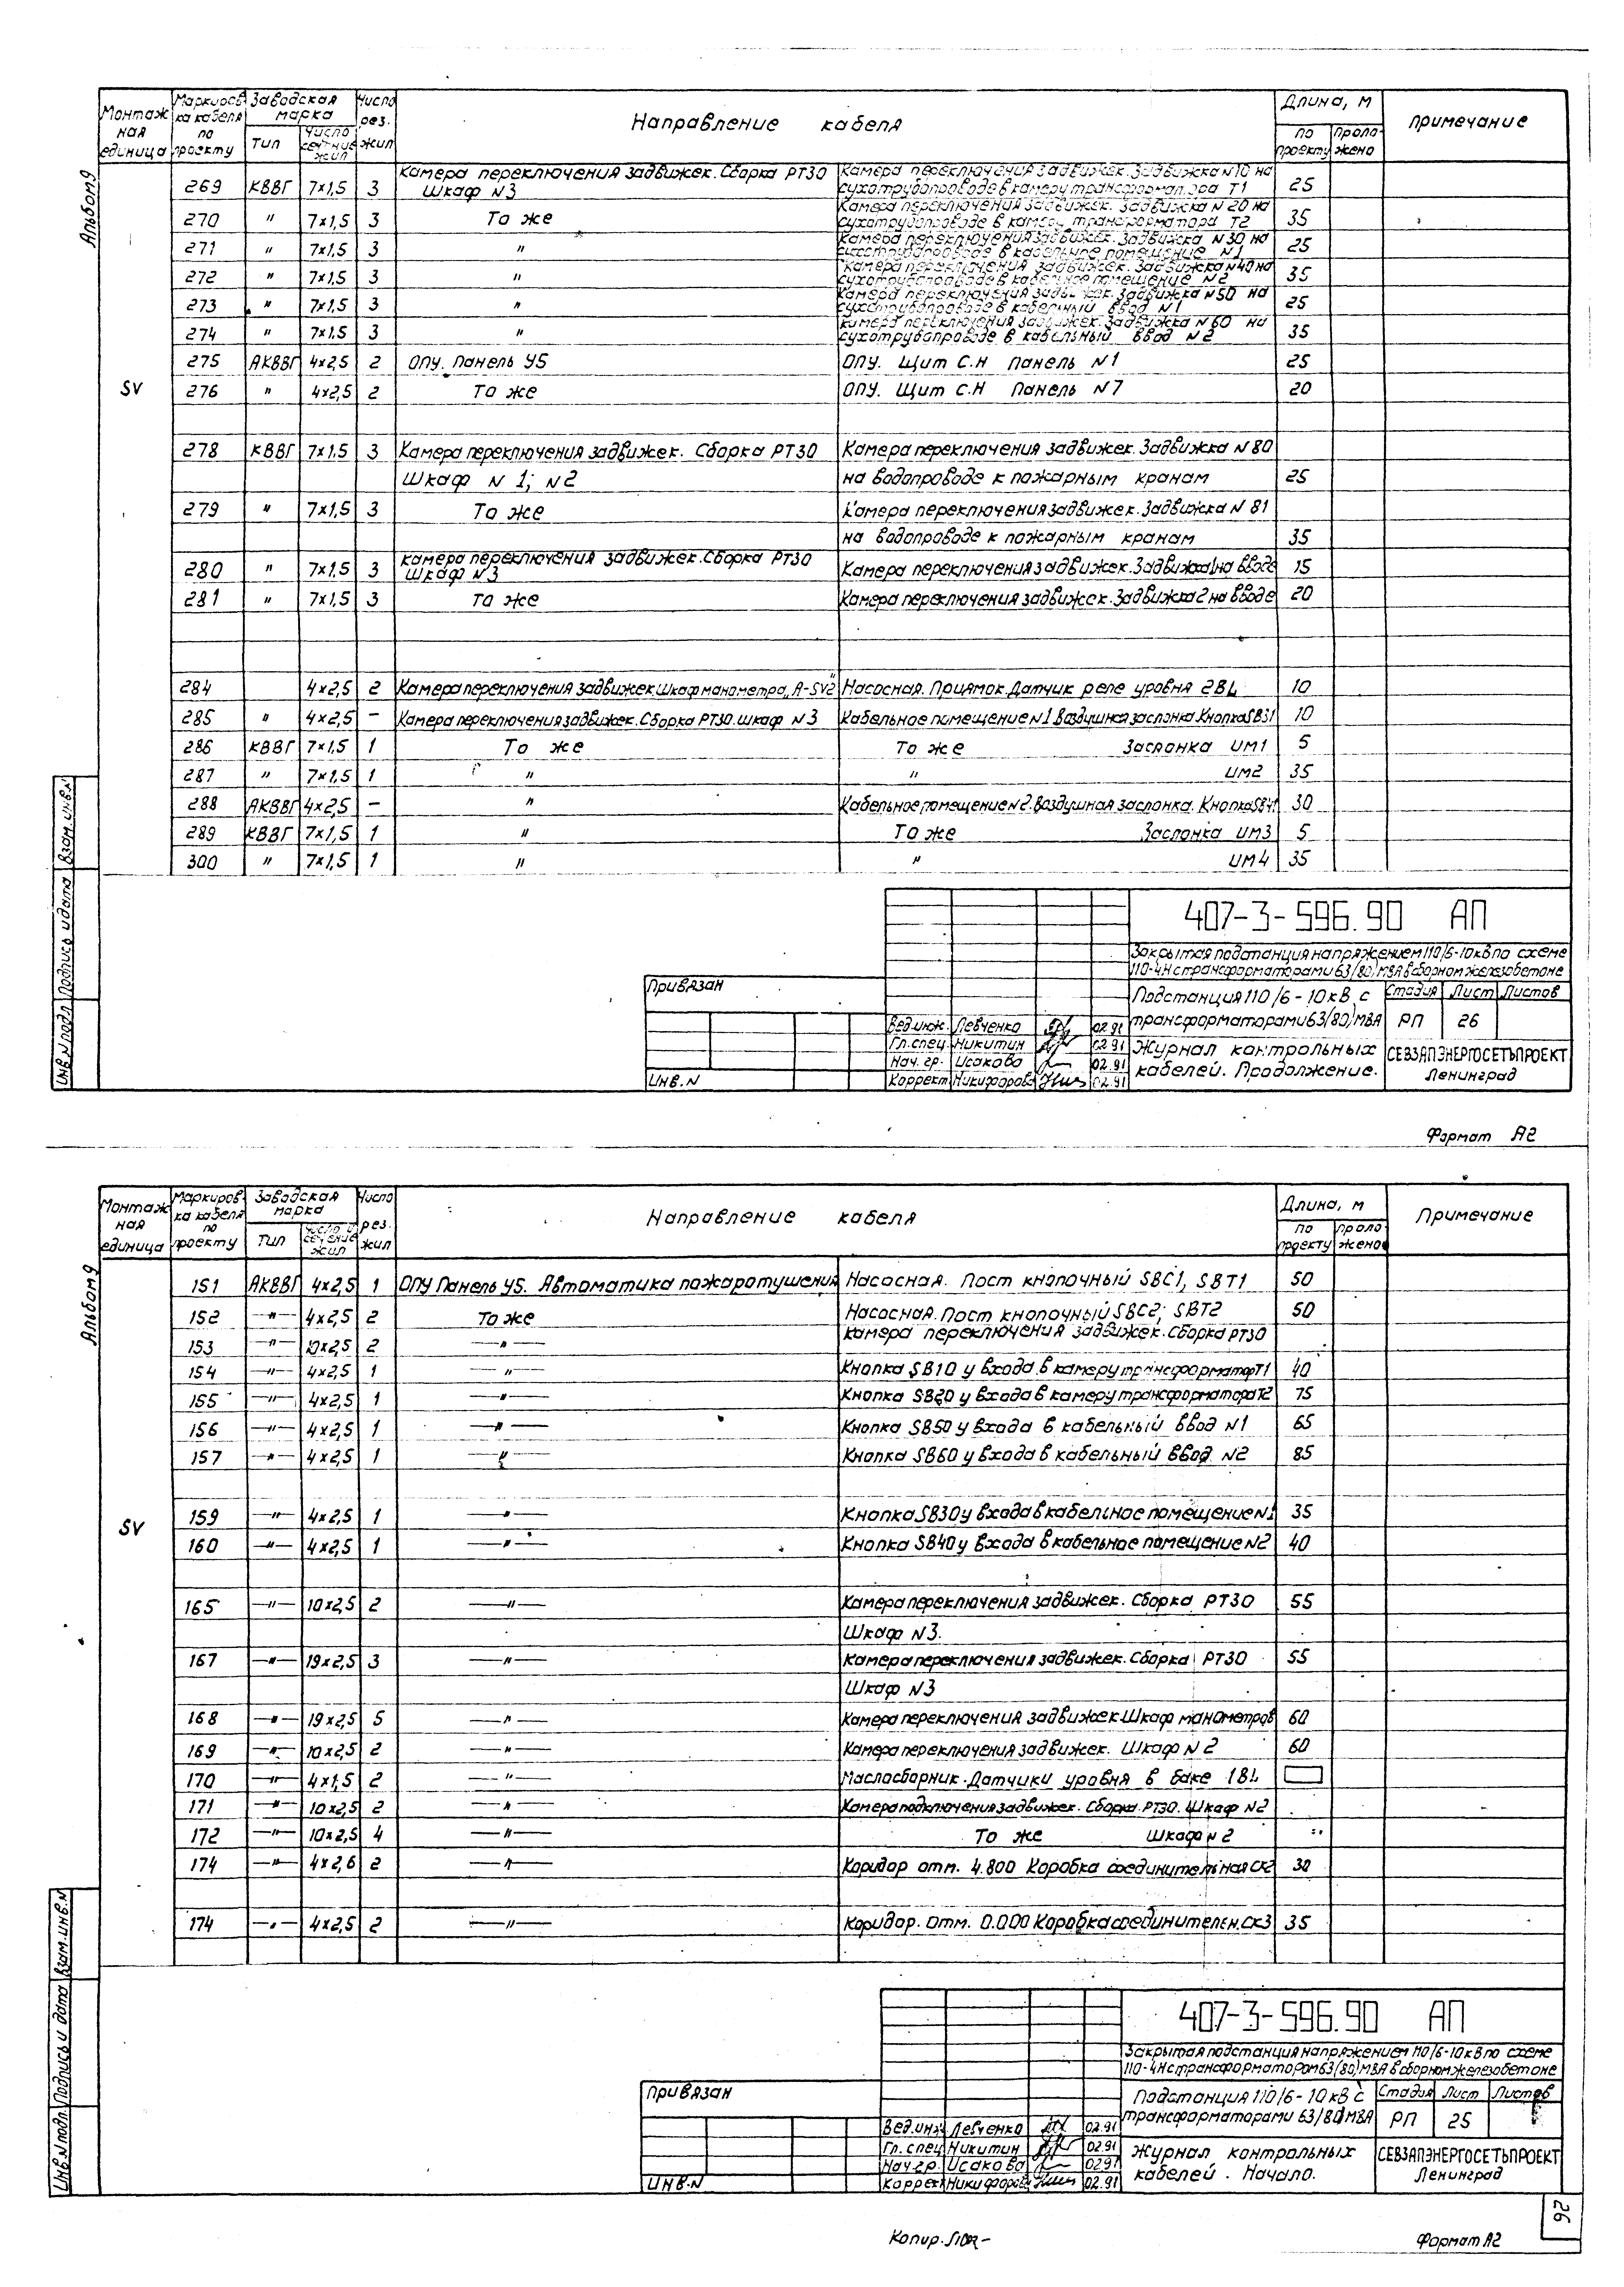 Альбом 9
Монтажная единица | Маркировка кабеля по проекту | Заводская марка | Число рез. жил | Направление кабеля | Длина, м | Примечание
Тип | Число сечение жил | по проекту | проложено
SV
269 КВВГ 7×1,5 3 Камера переключения задвижек. Сборка РТ30 Шкаф N3 | Камера переключения задвижек. Задвижка N10 на сухотрубопроводе в камеру трансформатора Т1 25
270 " 7×1,5 3 То же | Камера переключения задвижек. Задвижка N 20 на сухотрубопроводе в камеру трансформатора Т2 35
271 " 7×1,5 3 " | Камера переключения задвижек. Задвижка N30 на сухотрубопроводе в кабельное помещение N1 25
272 " 7×1,5 3 " | Камера переключения задвижек. Задвижка N40 на сухотрубопроводе в кабельное помещение N2 35
273 " 7×1,5 3 " | Камера переключения задвижек. Задвижка N50 на сухотрубопроводе в кабельный ввод N1 25
274 " 7×1,5 3 " | Камера переключения задвижек. Задвижка N60 на сухотрубопроводе в кабельный ввод N2 35
275 АКВВГ 4×2,5 2 ОПУ. Панель У5 | ОПУ. Щит С.Н Панель N1 25
276 " 4×2,5 2 То же | ОПУ. Щит С.Н Панель N7 20
278 КВВГ 7×1.5 3 Камера переключения задвижек. Сборка РТ30 | Камера переключения задвижек. Задвижка N 80
Шкаф N 1; N2 | на водопроводе к пожарным кранам 25
279 " 7×1,5 3 То же | Камера переключения задвижек. Задвижка N 81
на водопроводе к пожарным кранам 35
280 " 7×1,5 3 Камера переключения задвижек. Сборка РТ30 Шкаф N3 | Камера переключения задвижек. Задвижка1на вводе 15
281 " 7×1,5 3 То же | Камера переключения задвижек. Задвижка 2 на вводе 20
284 4×2,5 2 Камера переключения задвижек. Шкаф манометра „А-SV2" | Насосная. Приямок. Датчик реле уровня 2BL 10
285 " 4×2,5 – Камера переключения задвижек. Сборка РТ30. шкаф N 3 | Кабельное помещение N1 Воздушная заслонка. Кнопка SB31 10
286 КВВГ 7×1,5 1 То же | То же Заслонка ИМ1 5
287 " 7×1,5 1 " | " ИМ2 35
288 АКВВГ 4×2,5 – " | Кабельное помещение N2. Воздушная заслонка. Кнопка SB41 30
289 КВВГ 7×1,5 1 " | То же Заслонка ИМ3 5
300 " 7×1,5 1 " | " ИМ4 35
Инв. N подл. Подпись и дата Взам. инв. N
407-3-596.90 АП
Закрытая подстанция напряжением 110/6-10кВ по схеме
110-4Н с трансформаторами 63/80/МВА в сборном железобетоне
Привязан
Инв. N
Подстанция 110/6-10кВ с трансформаторами 63/80/МВА
Стадия Лист Листов
РП 26
Вед.инж. Левченко 02.91
Гл.спец. Никитин 02.91
Нач. гр. Исакова 02.91
Коррект. Никифорова 02.91
Журнал контрольных кабелей. Продолжение.
СЕВЗАПЭНЕРГОСЕТЬПРОЕКТ
Ленинград
Формат А2
Альбом 9
Монтажная единица | Маркировка кабеля по проекту | Заводская марка | Число рез. жил | Направление кабеля | Длина, м | Примечание
Тип | Число и сечение жил | по проекту | проложено
SV
151 АКВВГ 4×2,5 1 ОПУ Панель У5. Автоматика пожаротушения | Насосная. Пост кнопочный SBC1, SBT1 50
152 –"– 4×2,5 2 То же | Насосная. Пост кнопочный SBC2; SBT2 50
153 –"– 10×2,5 2 –"– | Камера переключения задвижек. Сборка РТ30
154 –"– 4×2,5 1 –"– | Кнопка SB10 у входа в камеру трансформатор Т1 40
155 –"– 4×2,5 1 –"– | Кнопка SB20 у входа в камеру трансформатора Т2 75
156 –"– 4×2,5 1 –"– | Кнопка SB50 у входа в кабельный ввод N1 65
157 –"– 4×2,5 1 –"– | Кнопка SB60 у входа в кабельный ввод N2 85
159 –"– 4×2,5 1 –"– | Кнопка SB30 у входа в кабельное помещение N1 35
160 –"– 4×2,5 1 –"– | Кнопка SB40 у входа в кабельное помещение N2 40
165 –"– 10×2,5 2 –"– | Камера переключения задвижек. Сборка РТ30 55
Шкаф N3.
167 –"– 19×2,5 3 –"– | Камера переключения задвижек. Сборка РТ30 55
Шкаф N3
168 –"– 19×2,5 5 –"– | Камера переключения задвижек. Шкаф манометров 60
169 –"– 10×2,5 2 –"– | Камера переключения задвижек. Шкаф N 2 60
170 –"– 4×1,5 2 –"– | Маслосборник. Датчики уровня в баке 1BL
171 –"– 10×2,5 2 –"– | Камера подключения задвижек. Сборка. РТ30. Шкаф N2
172 –"– 10×2,5 4 –"– | То же Шкаф N 2
174 –"– 4×2,6 2 –"– | Коридор отм. 4.800 Коробка соединительная СК2 30
174 –"– 4×2,5 2 –"– | Коридор. отм. 0.000 Коробка соединителен. СК3 35
Инв. N подл. Подпись и дата Взам. инв. N
407-3-596.90 АП
Закрытая подстанция напряжением 110/6-10кВ по схеме
110-4Н с трансформатором 63/80/МВА в сборном железобетоне
Привязан
Инв. N
Подстанция 110/6-10кВ с трансформаторами 63/80/МВА
Стадия Лист Листов
РП 25
Вед.инж. Левченко 02.91
Гл.спец. Никитин 02.91
Нач.гр. Исакова 02.91
Коррект. Никифорова 02.91
Журнал контрольных кабелей. Начало.
СЕВЗАПЭНЕРГОСЕТЬПРОЕКТ
Ленинград
26
Копир.
Формат А2